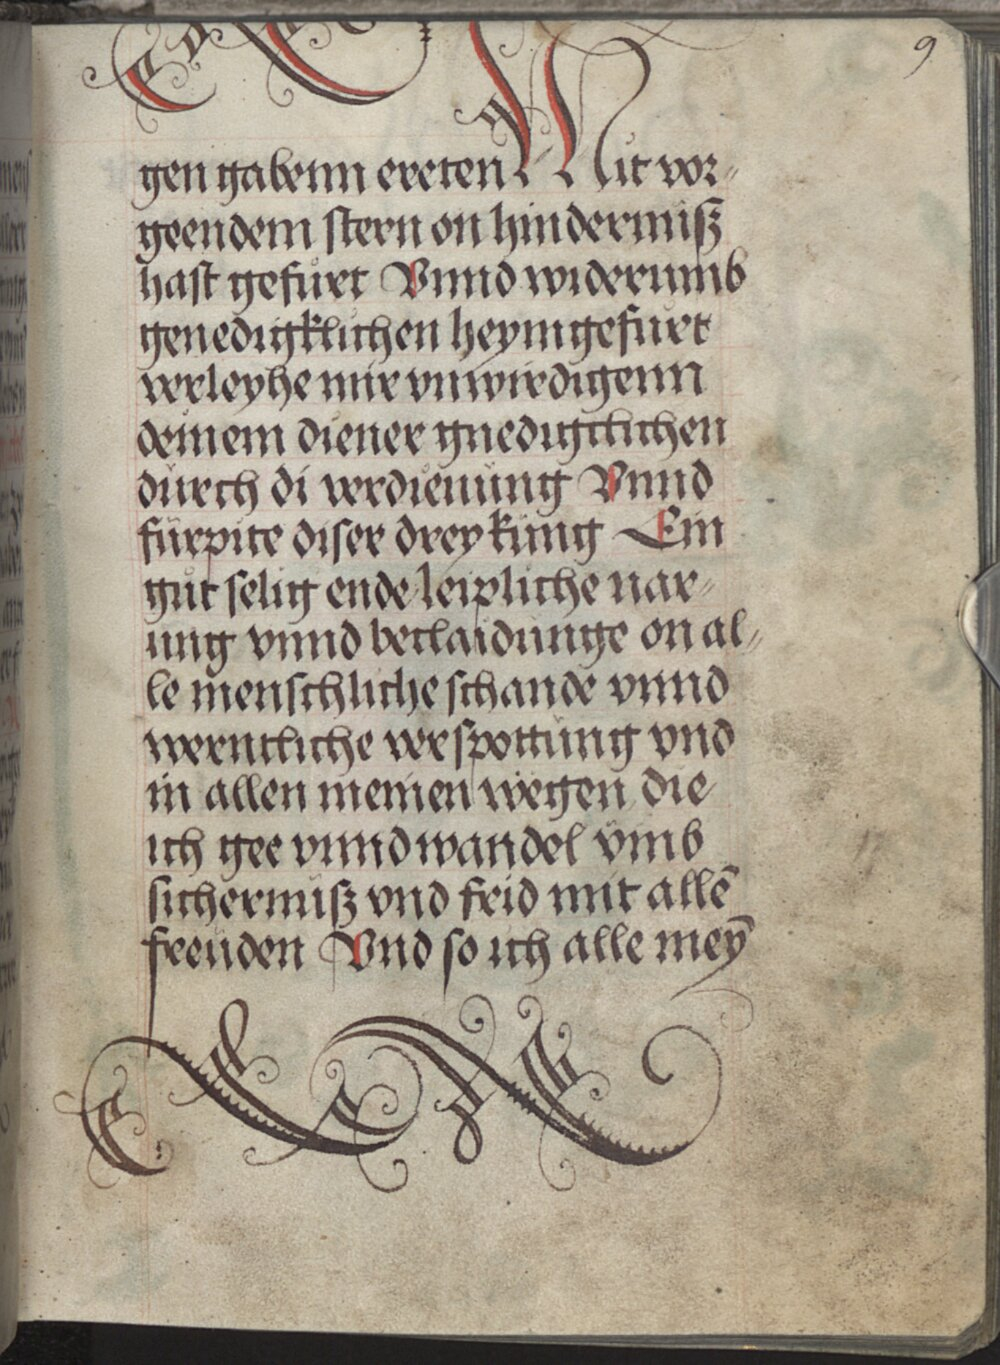 9
gen gabenn ereten Mit vor-
geendem stern on hindernuß
hast gefürt Vnnd widerumb
genedigklichen heymgefürt
verleyhe mir vnwirdigenn
deinem diener gnedigclichen
dürch di verdienüng Vnnd
fürpite diser drey küng Ein
güt selig ende leipliche nar-
ung vnnd beclaidünge on al-
le menschliche schande vnnd
werntliche verspottüng vnd
in allen meinen wegen die
ich gee vnnd wandel vmb
sichernüß vnd frid mit allē
freüden Vnd so ich alle meȳ